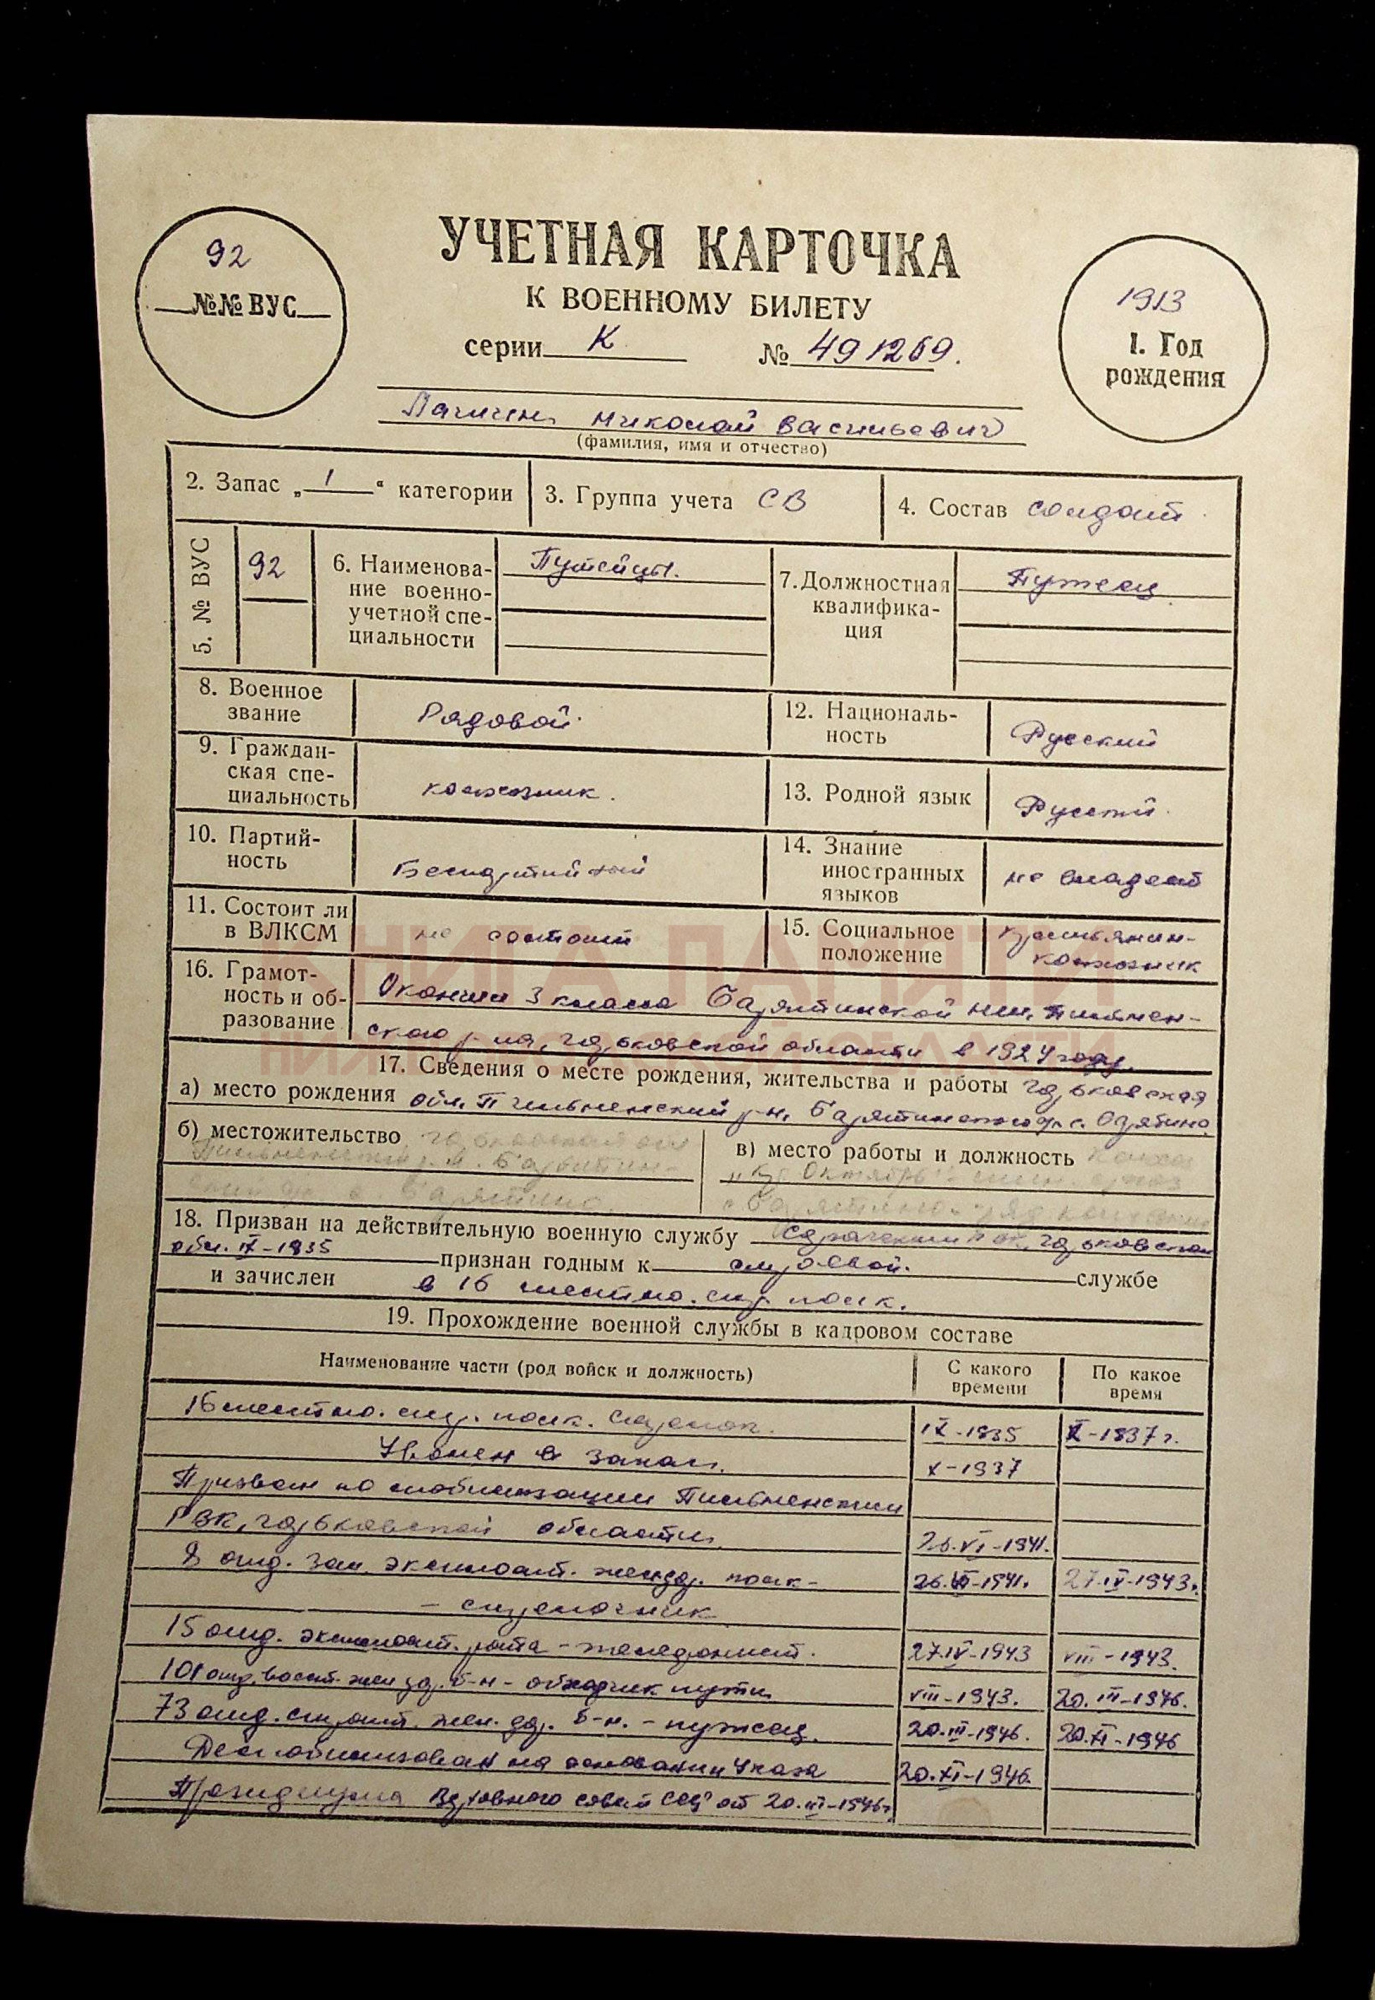 92
№№ ВУС
УЧЕТНАЯ КАРТОЧКА
К ВОЕННОМУ БИЛЕТУ
серии К № 491269.
1913
1. Год
рождения
Николай Васильевич
(фамилия, имя и отчество)
2. Запас „ 1 “ категории
3. Группа учета СВ
4. Состав солдат
5. № ВУС
92
6. Наименова-
ние военно-
учетной спе-
циальности
Путейцы.
7. Должностная
квалифика-
ция
Путеец
8. Военное
звание
Рядовой.
12. Националь-
ность
Русский
9. Граждан-
ская спе-
циальность
колхозник.
13. Родной язык
Русский.
10. Партий-
ность
Беспартийный
14. Знание
иностранных
языков
не владеет
11. Состоит ли
в ВЛКСМ
не состоит
15. Социальное
положение
крестьянин-
колхозник
КНИГА ПАМЯТИ
НИЖЕГОРОДСКОЙ ОБЛАСТИ
16. Грамот-
ность и об-
разование
Окончил 3 класса Барятинской нш, Пильнен-
ского р-на, горьковской области в 1924 году.
17. Сведения о месте рождения, жительства и работы горьковская
а) место рождения обл. Пильненский р-н, Барятинского с.
б) местожительство горьковская обл
Пильненский р-н. Барятин-
ский с. Барятино
в) место работы и должность колхоз
Октября
Барятино
18. Призван на действительную военную службу горьковской
обл. IX-1935 признан годным к строевой. службе
и зачислен в 16 местно. стр. полк.
19. Прохождение военной службы в кадровом составе
Наименование части (род войск и должность)
С какого
времени
По какое
время
16 местно. стр. полк. стрелок. IX-1935 X-1937 г.
Уволен в запас. X-1937
Призван по мобилизации Пильненским
РВК, горьковской области 26.VI-1941.
8 отд. зап. эксплоат. желдор. полк- 26.VI-1941. 27.IV-1943г.
- стрелочник
15 отд. эксплоат. рота - 27.IV-1943 VIII-1943.
101 отд. восст. жел дор. б-н - обходчик пути VIII-1943. 20.III-1946.
73 отд. строит. жел. дор. б-н. - путеец. 20.III-1946. 20.XI-1946
Демобилизован на основании Указа 20.XI-1946.
Президиума Верховного совета СССР от 20.III-1946г